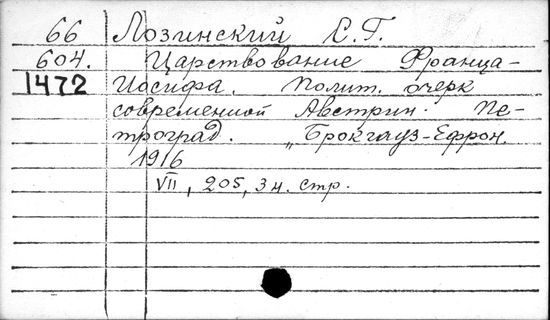 66 Лозинский С.Г.
604. Царствование Франца-
1472 Иосифа. Полит. очерк
современной Австрии. Пе-
троград. „Брокгауз-Ефрон.
1916
VII, 205, 3 н. стр.